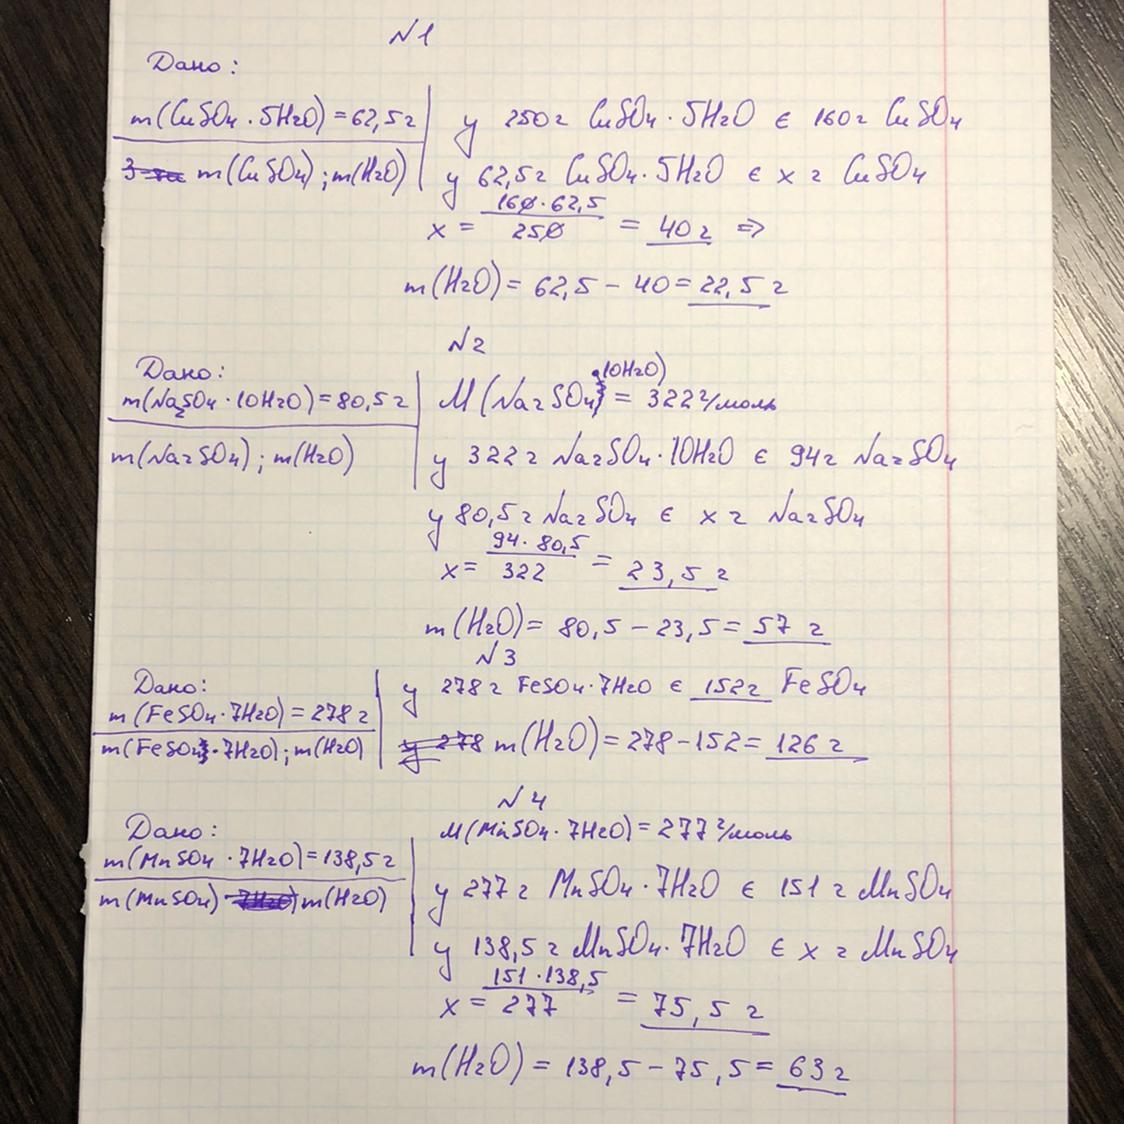 N1
Дано:
m(CuSO4·5H2O)=62,5г
m(CuSO4);m(H2O)
у 250г CuSO4·5H2O є 160г CuSO4
у 62,5г CuSO4·5H2O є x г CuSO4
x = 160·62,5/250 = 40г ⇒
m(H2O) = 62,5 - 40 = 22,5 г
N2
Дано:
m(Na2SO4·10H2O)=80,5г
m(Na2SO4); m(H2O)
M(Na2SO4·10H2O) = 322г/моль
у 322г Na2SO4·10H2O є 94г Na2SO4
у 80,5г Na2SO4 є x г Na2SO4
x = 94·80,5/322 = 23,5 г
m(H2O) = 80,5 - 23,5 = 57 г
N3
Дано:
m(FeSO4·7H2O) = 278г
m(FeSO4·7H2O); m(H2O)
у 278г FeSO4·7H2O є 152г FeSO4
у 278 m(H2O) = 278-152 = 126г
N4
Дано:
m(MnSO4·7H2O)=138,5г
m(MnSO4) 7H2O) m(H2O)
M(MnSO4·7H2O) = 277г/моль
у 277г MnSO4·7H2O є 151г MnSO4
у 138,5г MnSO4·7H2O є x г MnSO4
x = 151·138,5/277 = 75,5 г
m(H2O) = 138,5 - 75,5 = 63г